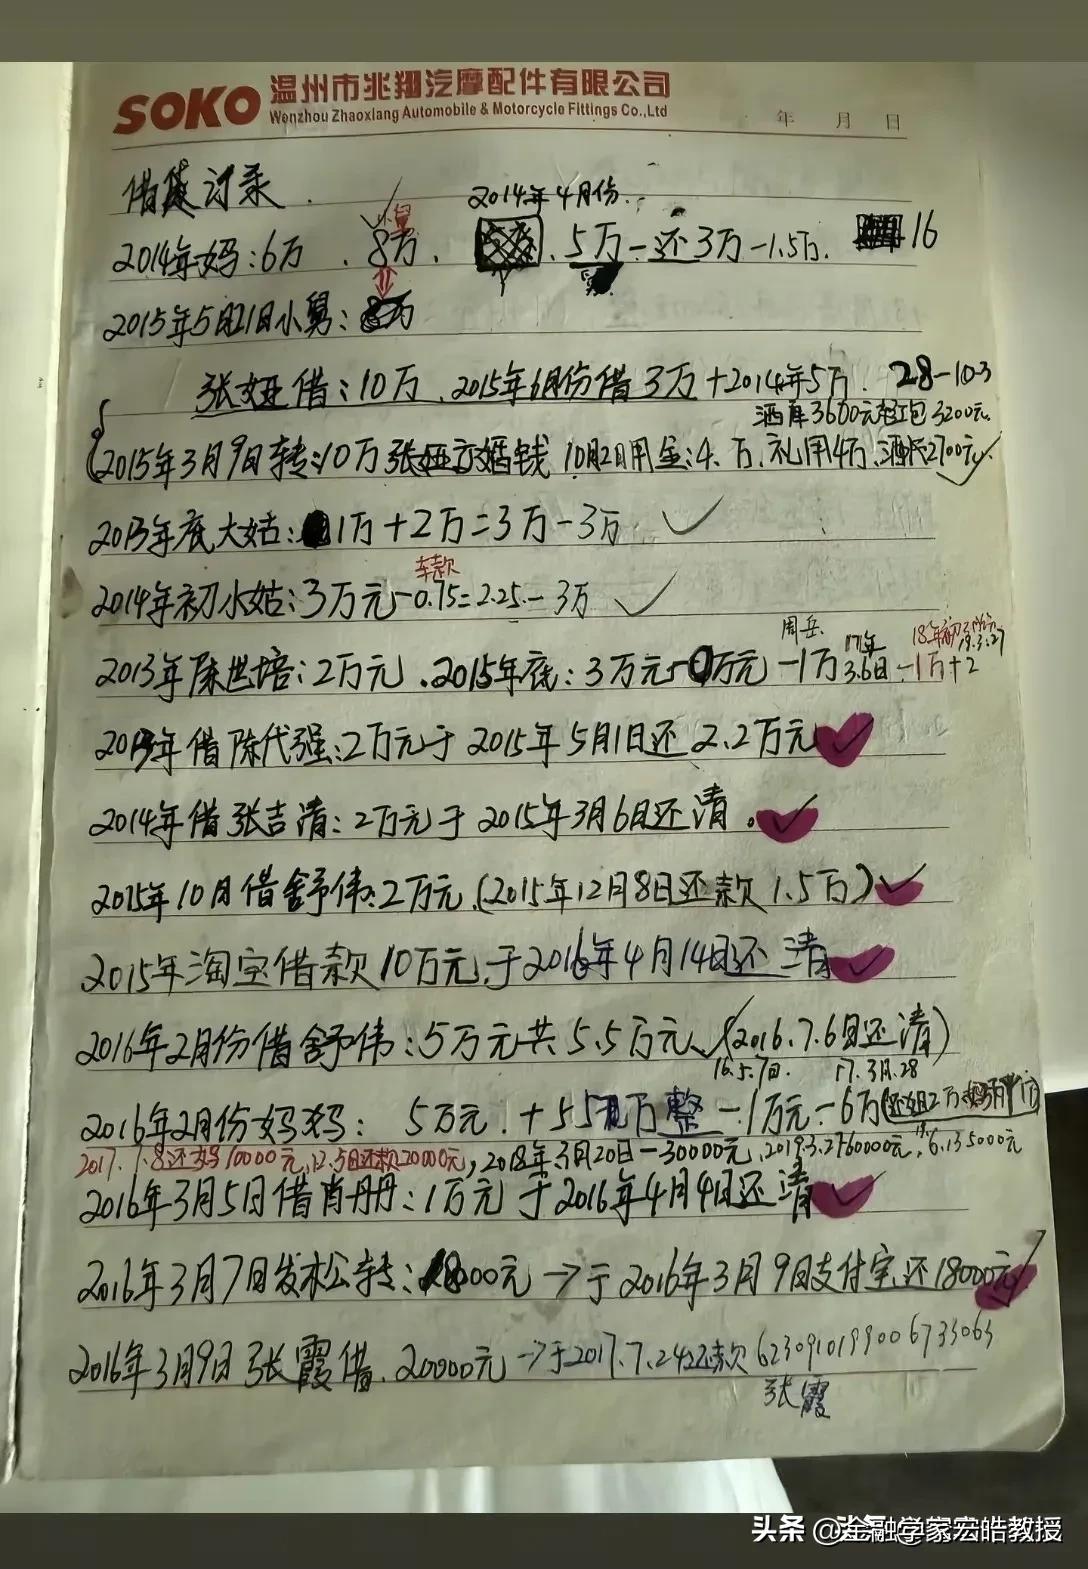 SOKO 温州市兆翔汽摩配件有限公司
Wenzhou Zhaoxiang Automobile & Motorcycle Fittings Co.,Ltd
年 月 日
借贷记录
2014年4月份
小舅
2014年妈:6万、8万、5万-还3万-1.5万. 16
2015年5月21日小舅:8万
张娅借:10万、2015年6月份借3万+2014年5万. 28-10-3
酒席3600元 红包3200元
2015年3月9日转:10万张娅 婚钱 10月2日用金:4万、礼用4万、2700元
2013年底大姑:1万+2万=3万-3万
车款
2014年初小姑:3万元-0.75=2.25-3万
周岳 17年 18年初
19.3.27
2013年陈世培:2万元、2015年底:3万元 万元-1万 3.6日-1万+2
2013年借陈代强:2万元于2015年5月1日还2.2万元
2014年借张吉清:2万元于2015年3月6日还清。
2015年10月借舒伟:2万元(2015年12月8日还款1.5万)
2015年淘宝借款10万元,于2016年4月14日还清
2016年2月份借舒伟:5万元共5.5万元(2016.7.6日还清)
16.5.7日. 17.3月.28
2016年2月份妈妈: 5万元+5.5万整-1万元-6万(还姐2万
2017.7.8还妈10000元,12.5日还款20000元,2018年3月20日-30000元,2019.3.27 60000元,6.13 5000元
2016年3月5日借肖丹丹:1万元于2016年4月4日还清
2016年3月7日发松转:18000元→于2016年3月9日支付宝还18000元
2016年3月9日张霞借.20000元→于2017.7.24还款 6230910199006733063
张霞
头条 @金融学家宏皓教授